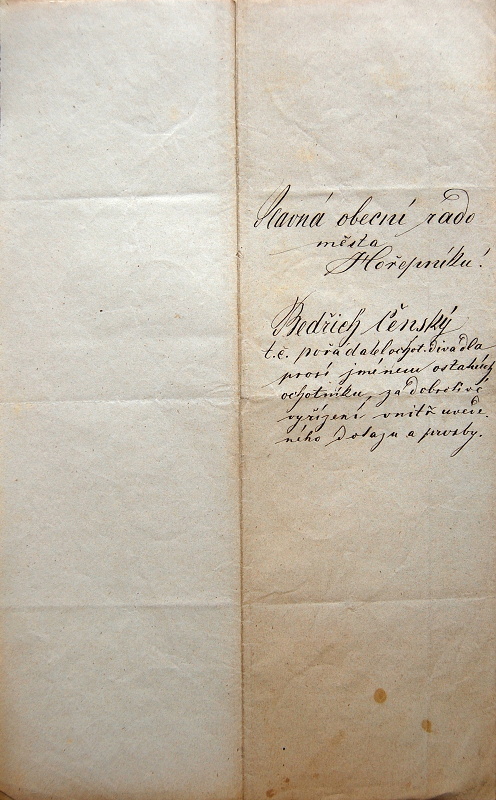 Slavná obecní rado
města
Hořepníku!
Bedřich Čěnský
t.č. pořadatel ochot. divadla
prosí jménem ostatních
ochotníku, za dobrotivé
vyřízení vnitř uvede-
ného dotazu a prosby.